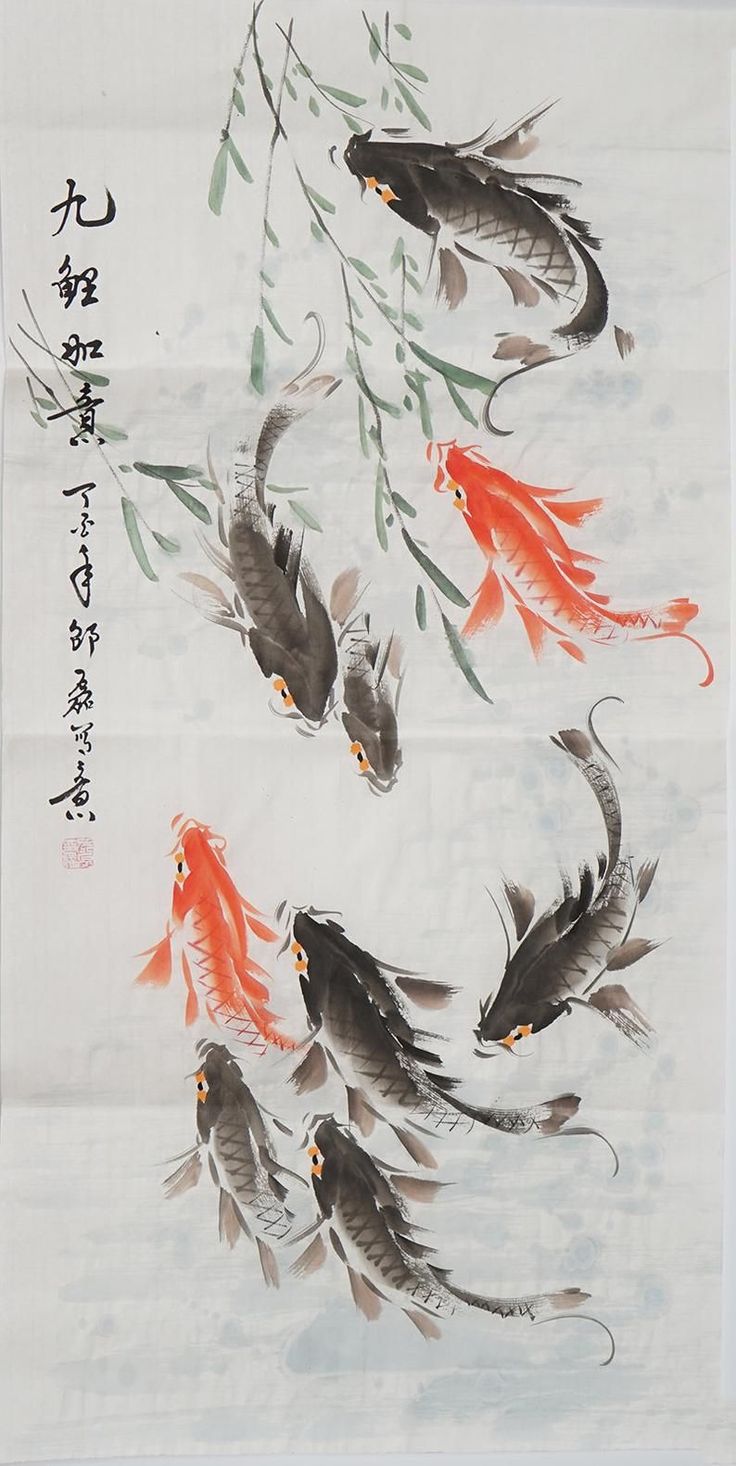 九鲤如意丁酉年邵磊写意